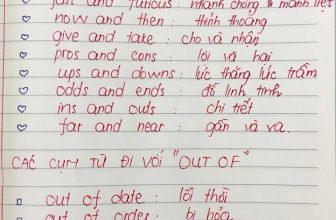 fast and furious : nhanh chóng & mãnh liệt
now and then : thỉnh thoảng
give and take : cho và nhận
pros and cons : lợi và hại
ups and downs : lúc thăng lúc trầm
odds and ends : đồ linh tinh
ins and outs : chi tiết
far and near : gần và xa.
CÁC CỤM TỪ ĐI VỚI "OUT OF"
out of date : lỗi thời
out of order : bị hỏng